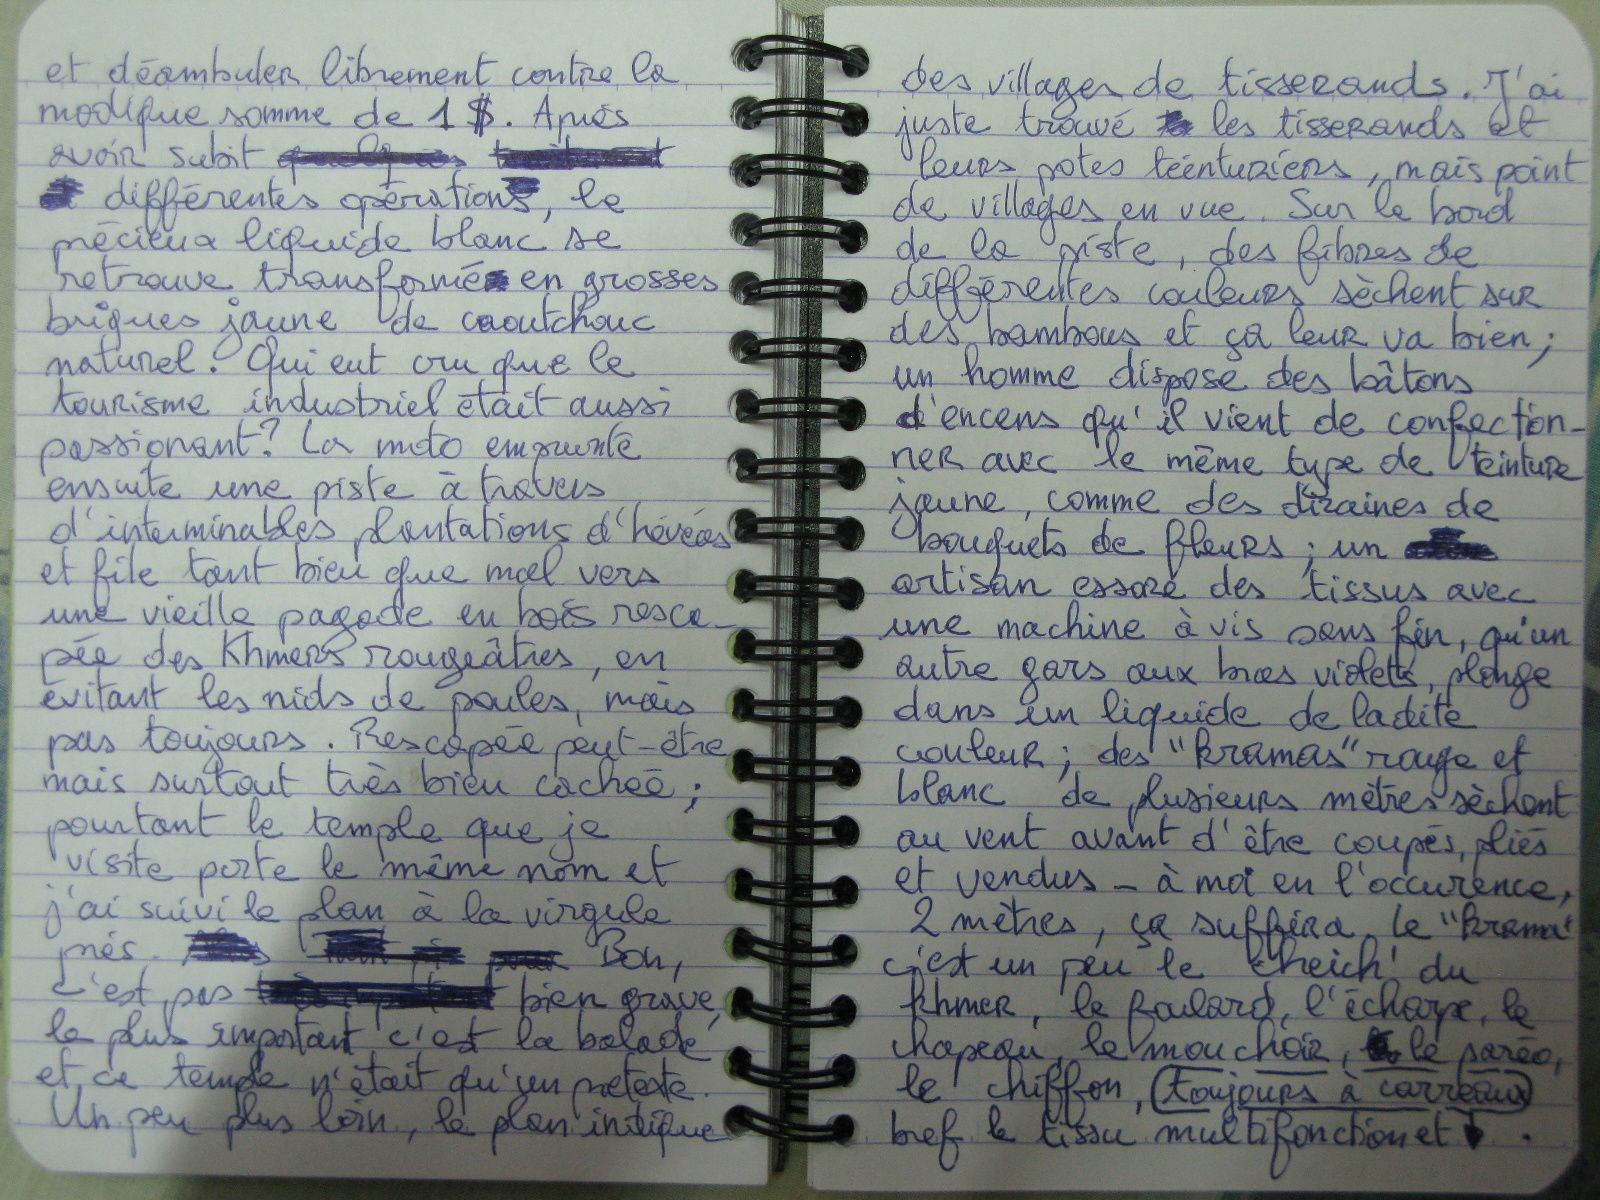 et déambuler librement contre la
modique somme de 1 $. Après
avoir subit
différentes opérations, le
précieux liquide blanc se
retrouve transformé en grosses
briques jaune de caoutchouc
naturel. Qui eut cru que le
tourisme industriel était aussi
passionant? La moto emprunte
ensuite une piste à travers
d'interminables plantations d'hévéas
et file tant bien que mal vers
une vieille pagode en bois resca-
pée des Khmers rougeâtres, en
évitant les nids de poules, mais
pas toujours. Rescapée peut-être
mais surtout très bien cachée ;
pourtant le temple que je
visite porte le même nom et
j'ai suivi le plan à la virgule
près. Bon,
c'est pas bien grave,
le plus important c'est la balade
et ce temple n'était qu'un pretexte.
Un peu plus loin, le plan indique
des villages de tisserands. J'ai
juste trouvé les tisserands et
leurs potes teenturiers, mais point
de villages en vue. Sur le bord
de la piste, des fibres de
différentes couleurs sèchent sur
des bambous et ça leur va bien ;
un homme dispose des bâtons
d'encens qu'il vient de confection-
ner avec le même type de teinture
jaune, comme des dizaines de
bouquets de fleurs ; un
artisan essore des tissus avec
une machine à vis sans fin, qu'un
autre gars aux bras violets, plonge
dans un liquide de ladite
couleur ; des "kramas" rouge et
blanc de plusieurs mètres sèchent
au vent avant d'être coupés, pliés
et vendus - à moi en l'occurence,
2 mètres, ça suffira. Le "krama"
c'est un peu le cheich du
Khmer, le foulard, l'écharpe, le
chapeau, le mouchoir, le paréo,
le chiffon, (toujours à carreaux)
bref le tissu multifonction et ↓ .